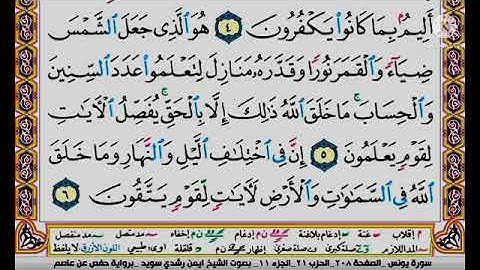 أَلِيمٌۢ بِمَا كَانُوا۟ يَكْفُرُونَ ٤ هُوَ ٱلَّذِى جَعَلَ ٱلشَّمْسَ
ضِيَآءً وَٱلْقَمَرَ نُورًا وَقَدَّرَهُۥ مَنَازِلَ لِتَعْلَمُوا۟ عَدَدَ ٱلسِّنِينَ
وَٱلْحِسَابَ ۚ مَا خَلَقَ ٱللَّهُ ذَٰلِكَ إِلَّا بِٱلْحَقِّ ۚ يُفَصِّلُ ٱلْءَايَٰتِ
لِقَوْمٍ يَعْلَمُونَ ٥ إِنَّ فِى ٱخْتِلَٰفِ ٱلَّيْلِ وَٱلنَّهَارِ وَمَا خَلَقَ
ٱللَّهُ فِى ٱلسَّمَٰوَٰتِ وَٱلْأَرْضِ لَءَايَٰتٍ لِّقَوْمٍ يَتَّقُونَ ٦
م إقلاب غنة إدغام بلاغنة إدغام إخفاء مد متصل مد منفصل
مد اللازم صلة كبرى صلة صغرى إظهار قلقلة اللون الأزرق لا يلفظ
سورة يونس _ الصفحة ٢٠٨_ الحزب ٢١_ الجزء ١١_ بصوت الشيخ ايمن رشدي سويد _ برواية حفص عن عاصم